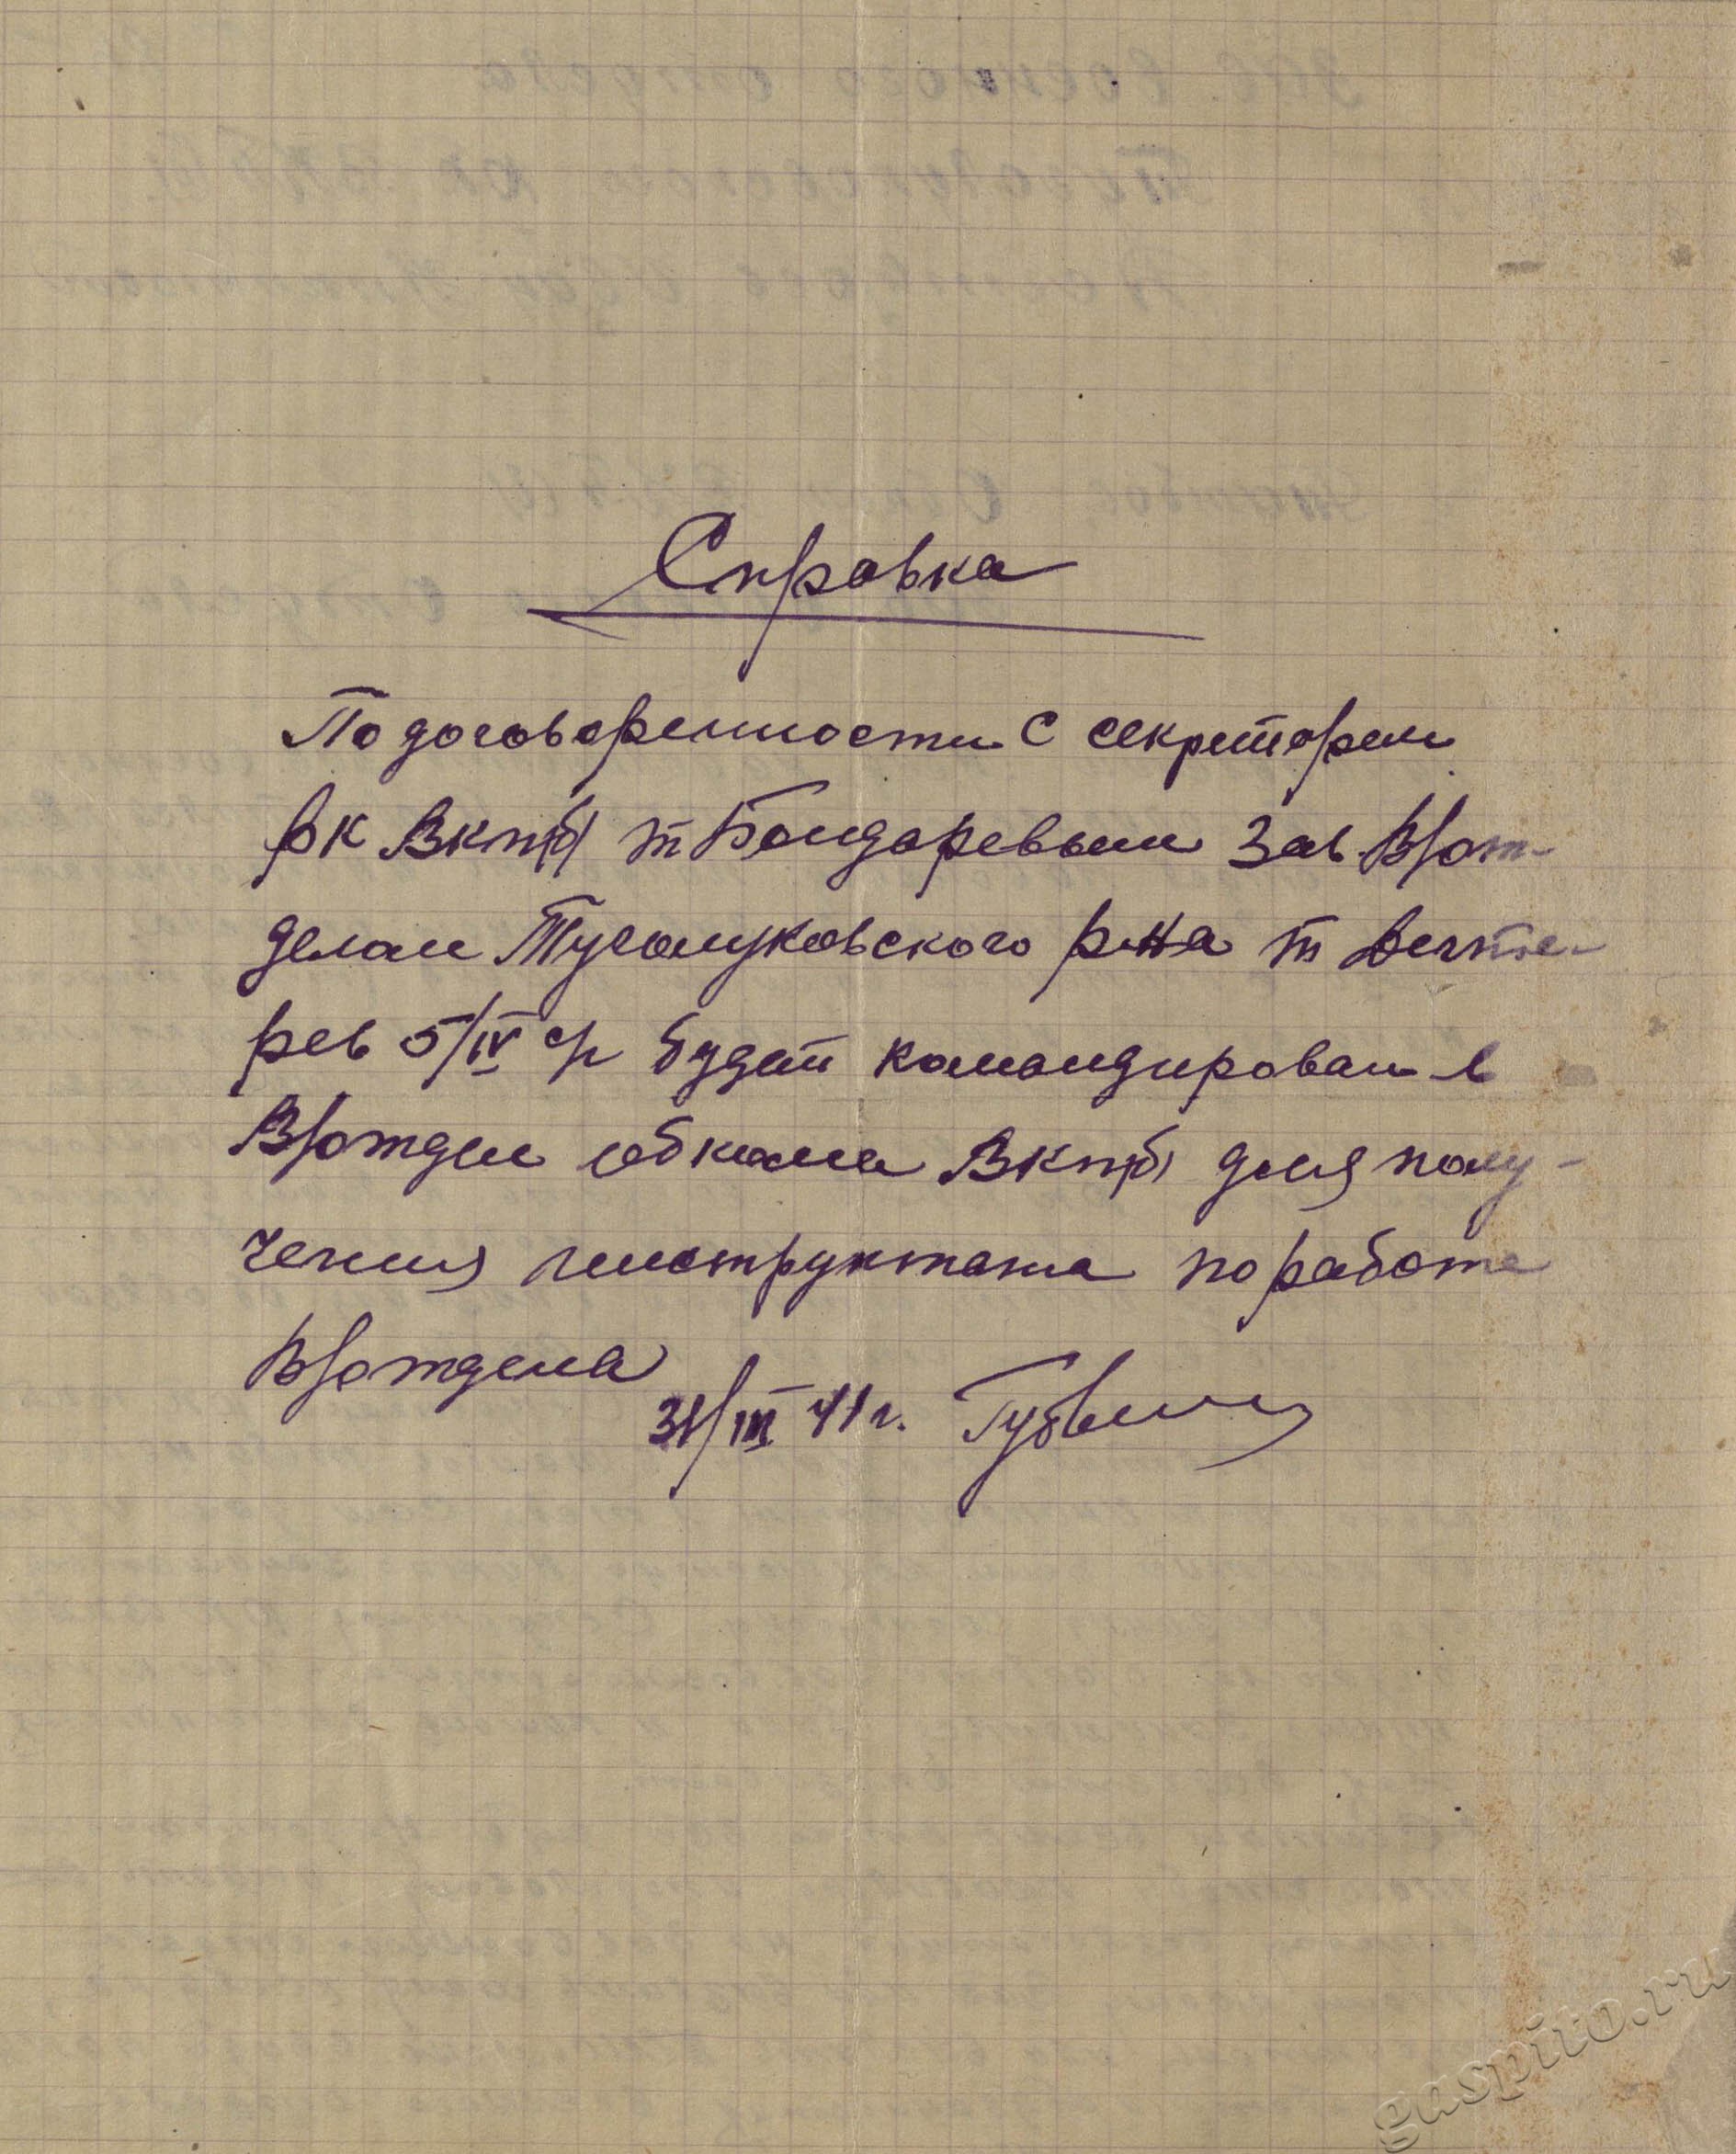 Справка
По договоренности с секретарем
рк Вкп(б) т Бондаревым Зав В/от-
делом Туголуковского р-на т
рев 5/IV с/г будет командирован в
В/отдел обкома Вкп(б) для полу-
чения инструктажа по работе
В/отдела
31/III 41 г. Губ
gaspito.ru